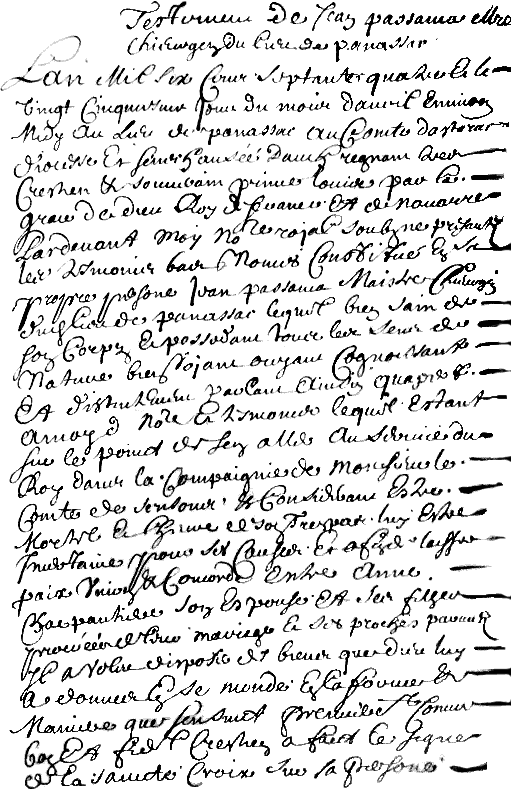 Testement de Jean passama mtre
Chirurgien du lieu de panassac
Lan Mil six Cens septante quatre et le
vingt Cinquiesme Jour du mois davril Environ
Midy au Lieu de panassac au Comte dastarac
diocese Et senechaussée dauch regnant tres
Crestien & souverain prince louis par la
grace de dieu Roy de france Et de navarre
Pardevant Moy Nore royal soubzne presantz
les tesmoins bas Nomes Constitué En sa
propre persone Jean passama Maistre Chirurgien
dud lieu de panassac lequel bien sain de
son Corps Et possedant tous ses sens de
Nature bien voyant oyant Cognoissant
Et distintement parlant ainsin quaparu
a moyd Nore Et tesmoins lequel Estant
sur le point de sen aller au service du
Roy dans la Compaignie de monsieur le
Comte de & Considerant Estre
Mortel Et lheure de son Trespas luy Estre
Incertaine pour ses Causes Et afin de laisser
paix union & Concorde Entre anne
Charpantiere son Espouse Et ses filhes
procréées de leur mariage Et ses proches parantz
Il a volu dispozer des biens que dieu luy
a donnes En se monde En la forme Et
Maniere que sensuit premieremt Comme
bon Et fidel Crestien a faict le signe
de la saincte Croix sur sa persone